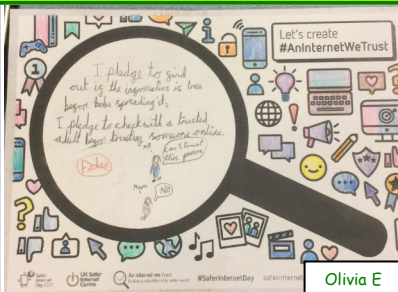 Let's create
#AnInternetWeTrust
I pledge to find
out if the information is true
before spreading it.
I pledge to check with a trusted
adult before trusting someone online.
me
Can I trust
this person
Fake
Mum
NO
Safer
Internet
Day 2021
UK Safer
Internet
Centre
An internet we trust
#SaferInternetDay
saferinternet
Olivia E